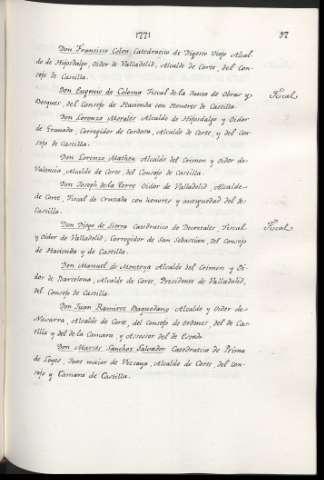 1771
97
Don Francisco Colon Catedratico de Digesto Viejo Alcal-
de de Hijosdalgo, Oidor de Valladolid, Alcalde de Corte, del Con-
sejo de Castilla.
Don Eugenio de Coloma Fiscal de la Junta de Obras y
Bosques, del Consejo de Hacienda con Honores de Castilla.
Fiscal
Don Lorenzo Morales Alcalde de Hijosdalgo y Oidor
de Granada, Corregidor de Cordova, Alcalde de Corte, y del Con-
sejo de Castilla.
Don Lorenzo Matheu Alcalde del Crimen y Oidor de
Valencia, Alcalde de Corte, del Consejo de Castilla.
Don Joseph de la Torre Oidor de Valladolid, Alcalde
de Corte, Fiscal de Cruzada con honores y antiguedad del de
Castilla.
Don Diego de Sierra Catedratico de Decretales Fiscal
y Oidor de Valladolid, Corregidor de San Sebastian, del Consejo
de Hacienda y de Castilla.
Fiscal
Don Manuel de Montoya Alcalde del Crimen y Oi-
dor de Barcelona, Alcalde de Corte, Presidente de Valladolid,
del Consejo de Castilla.
Don Juan Ramirez Baquedano Alcalde y Oidor de
Navarra, Alcalde de Corte, del Consejo de Ordenes, del de Cas-
tilla y del de la Camara, y Assesor del de Estado.
Don Marcos Sanchez Salvador Catedratico de Prima
de Leyes, Juez maior de Vizcaya, Alcalde de Corte, del Con-
sejo y Camara de Castilla.